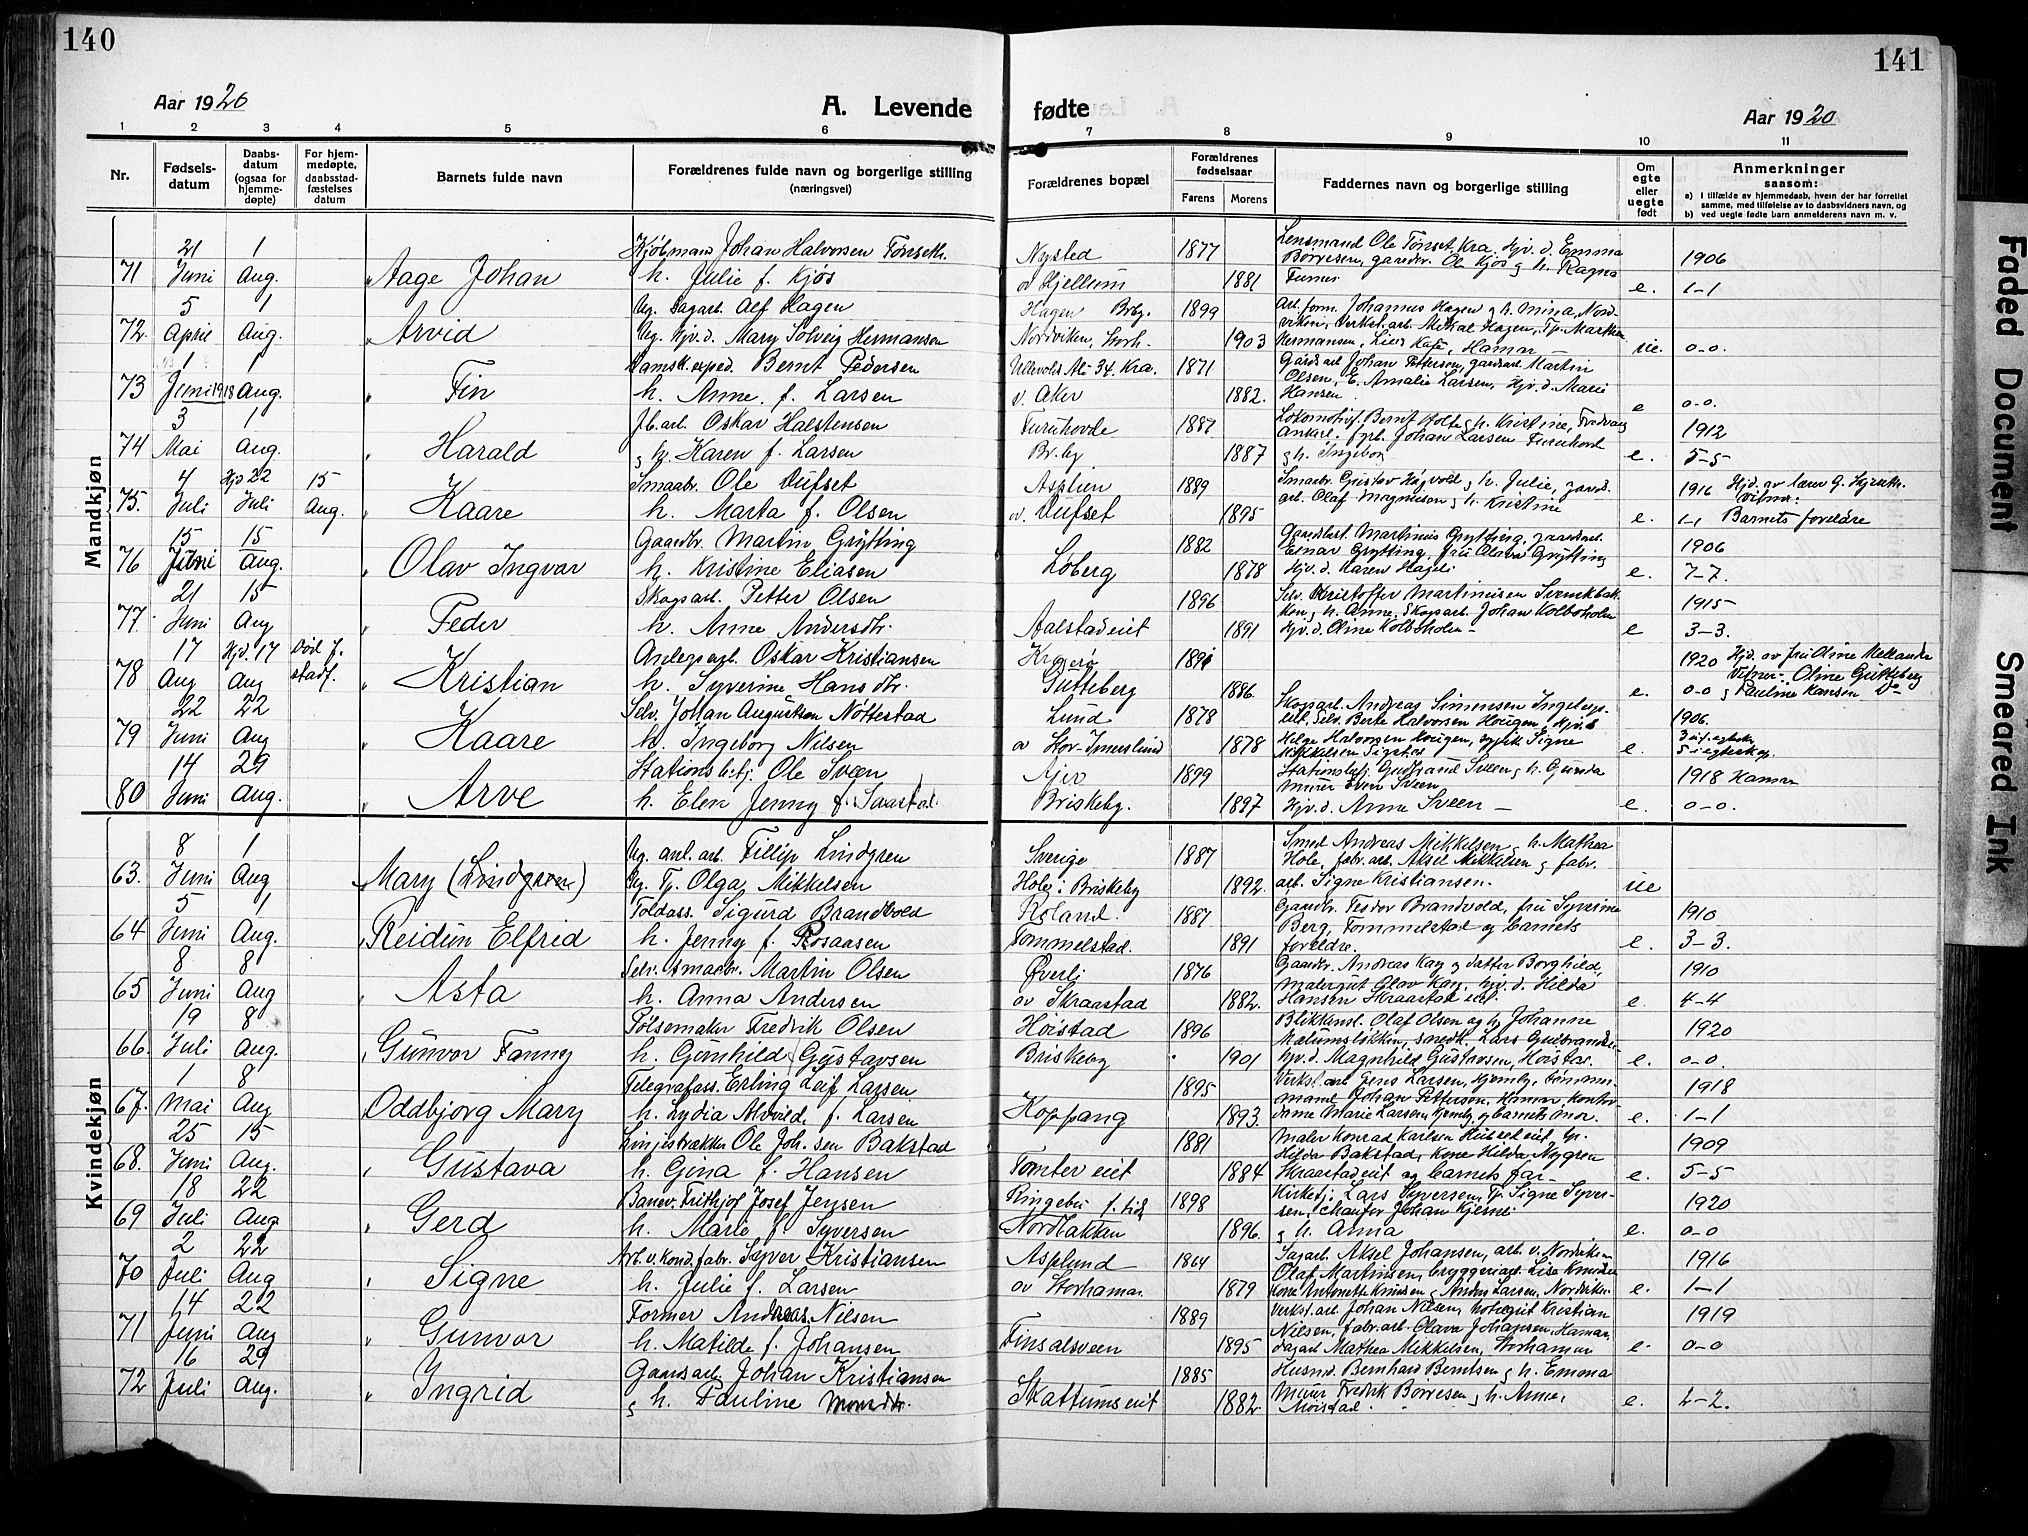 140
141
Aar 1920
A. Levende fødte
Aar 1920
1 2 3 4 5 6 7 8 9 10 11
Nr.
Fødsels-
datum
Daabs-
datum
(ogsaa for
hjemme-
døpte)
For hjem-
medøpte,
daabsstad-
fæstelses
datum
Barnets fulde navn
Forældrenes fulde navn og borgerlige stilling
(næringsvei)
Forældrenes bopæl
Forældrenes
fødselsaar
Farens Morens
Faddernes navn og borgerlige stilling
Om
egte
eller
uegte
født
Anmerkninger
saasom:
a) I tilfælde av hjemmedaab, hvem der har forrettet
samme, med tilføielse av to daabsvidners navn, og
b) ved uegte fødte barn anmelderens navn m. v.
Mandkjøn
21 1 Kjøbmand Johan Halvorsen Tønseth Nysted 1877 Lensmand Ole Tønset, Kra. Hjv. d. Emma
71 Juni Aug. Aage Johan h. Julie f. Kjos av Hjellum 1881 Børresen, gaardbr. Ole Kjos og h. Ragna Furnes e. 1906 1-1
5 1 Ug. Sagarb. Alf Hagen Hagen Brby. 1899 Arb. form. Johannes Hagen og h. Mina, Nord-
72. April Aug. Arvid Ug. Hjv. d. Mary Solveig Hermansen Nordviken, Storh. 1903 viken, Verkst. arb. Mikal Hagen, Tj. Marthea Hermansen, Hamar ue. 0-0.
1 1 Bernt Pedersen Ullevolds Alé 34. Kra. 1871 Gaardsarb. Johan Pettersen, gaardsarb. Martin
73 Juni 1918 Aug. Fin h. Anne f. Larsen v. Aker 1882. Olsen, E. Amalie Larsen, Hjv. d. Marie Hansen e 0-0.
3 1 Jb. arb. Oskar Halstensen Furuhovde 1887 Lokomotivf. Bernt Holte og h. Kristine, Fredvang
74 Mai Aug. Harald og h. Karen f. Larsen Br. by. 1887 Johan Larsen Furuhovd og h. Ingeborg e. 1912 5-5
4 Hjd 22 15 Smaabr. Ole Dufset Asplien 1889 Smaabr. Gustav Høgvold og h. Julie, gaard.
75. Juli Juli Aug. Kaare h. Marta f. Olsen av. Dufset 1895 arb. Olaf Magnusen og h. Kristine e. 1916 1-1 Hjd. av lærer G. Hjerseth. Vitner: Barnets foreldre
15 15 Gaardbr. Martin Grytting 1882 Gaardbest. Martinius Grytting, gaardarb.
76 Juni Aug. Olav Ingvar h. Kristine Eliasen Løberg 1878 Einar Grytting, fru Olava Grytting Hjv. d. Karen Hageli e. 1906 7-7.
21 15 Skogsarb. Petter Olsen 1896 Selv. Kristoffer Martiniusen Svenkbak-
77. Juni Aug Peder h. Anne Andersdtr. Aalstadeiet 1891 ken og h. Anne, Skogsarb. Johan Kolboholm Hjv. d. Oline Kolboholm - e 1915- 3-3.
17 Hjd. 17 Død f. Anlegsarb. Oskar Kristiansen Kragerø 1891
78 Aug Aug stadf. Kristian h. Syverine Hansdtr. Gutteberg 1886. e. 1920 0-0 Hjd. av fru Oline Mellander Vitner: Oline Gutteberg og Pauline Hansen do
22 22 Selv. Johan Augustsen Nøttestad Lund 1878 Skogsarb. Andreas Simensen Ingeberg-
79 Juni Aug Kaare h. Ingeborg Nilsen av Stor-Imerslund 1878 eiet, Selv. Berte Halvorsen Hougen, Hjv. d. Helge Halvorsen Hougen, Signe Mikkelsen Sigstad e. 1906. 3 uf. egtesk. 5 i egteskap.
14 29 Stationsbetj. Ole Sveen Ajer 1899 Stationsbetj. Gudbrand Sveen og h. Gunda
80 Juni Aug. Arve h. Elen Jenny f. Saastad. Briskeby. 1897 Murer Sveen Hjv. d. Anne Sveen - e. 1918 Hamar 0-0.
Kvindekjøn
8 1 Ug. anl. arb. Fillip Lindgren Sverige 1887 Smed Andreas Mikkelsen og h. Mathea
63. Juni Aug Mary (Lindgren) Ug. Tj. Olga Mikkelsen Hole i Briskeby 1892. Hole, fabr. arb. Aksel Mikkelsen og fabr. arb. Signe Kristiansen. ue
5 1 Toldass. Sigurd Brandvold Roland. 1887 Gaardbr. Teodor Brandvold, fru Syverine
64 Juni Aug. Reidun Elfrid h. Jenny f. Rosaasen Tommelstad. 1891 Berg, Tommelstad og barnets foreldre. e. 1910 3-3.
8 8 Selv. smaabr. Martin Olsen Øverli 1876 Gaardbr. Andreas Kay og datter Borghild,
65 Juni Aug Asta h. Anna Andersen av Skraastad 1882. Malergut Olav Kay, hjv. d. Hilda Hansen Skraastad eiet. e. 1910 4-4
19 8 Pølsemaker Fredrik Olsen Høistad 1896 Blikkensl. Olaf Olsen og h. Johanne
66. Juli Aug. Gunvor Fanny h. Gunhild Gustavsen Briskeby 1901 Malumsløkken, snedk. Lars Gulbrandsen hjv. d. Magnhild Gustavsen, Høistad. e. 1920 0-0
1 8 Telegrafass. Erling Leif Larsen 1895 Verkst. arb. Jens Larsen, Hjemby, tømmer-
67. Mai Aug Oddbjørg Mary h. Lydia Alvild. f. Larsen Koppang 1893. mand Johan Pettersen, Hamar, kontor- dame Marie Larsen, Hjemby og barnets mor. e. 1918 1-1
25 15 Linjestrækker Ole Joh.sen Bakstad 1881 Maler Konrad Karlsen Huset eiet, hj.
68. Juni Aug. Gustava h. Gina f. Hansen Tomter eiet 1884 Hilda Bakstad, kone Hilda Nygren Skraastadeiet og barnets far - e. 1909 5-5
18 22 Banev. Frithjof Josef Jensen Ringebu f. tid. 1898 Kirketj. Lars Syversen, Tj. Signe Syver-
69 Juli Aug Gerd h. Marie f. Syversen Nordbakken 1896. sen, Chauffør Johan Kjernli og h. Anna e. 1920 0-0
2 22 Arb. v. kond. fabr. Syver Kristiansen Asplund 1864 Sagarb. Aksel Johansen, arb. v. Nordviken
70 Juli Aug Signe h. Julie f. Larsen av Storhamar 1879 Olaf Martinsen, bryggeriarb. Lise Knudsen Kone Antonette Knudsen og Anders Larsen, Nordviken. e. 1916 1-1
14 22 Former Andreas Nilsen 1889 Verkst. arb. Johan Nilsen, hotelgut Kristian
71 Juni Aug Gunvor h. Matilde f. Johansen Finsalsveen 1895 Nilsen, fabr. arb. Olava Johansen, Hamar, dagarb. Mathea Mikkelsen, Storhamar e. 1919 0-0
16 29 Gaardsarb. Johan Kristiansen 1885 Husmd. Bernhard Berntsen og h. Emma
72 Juli Aug. Ingrid og h. Pauline Monsdtr. Skattumseiet 1882 Murer Fredrik Børresen og h. Anne, Moistad. e. 2-2.
Faded Document
Smeared Ink